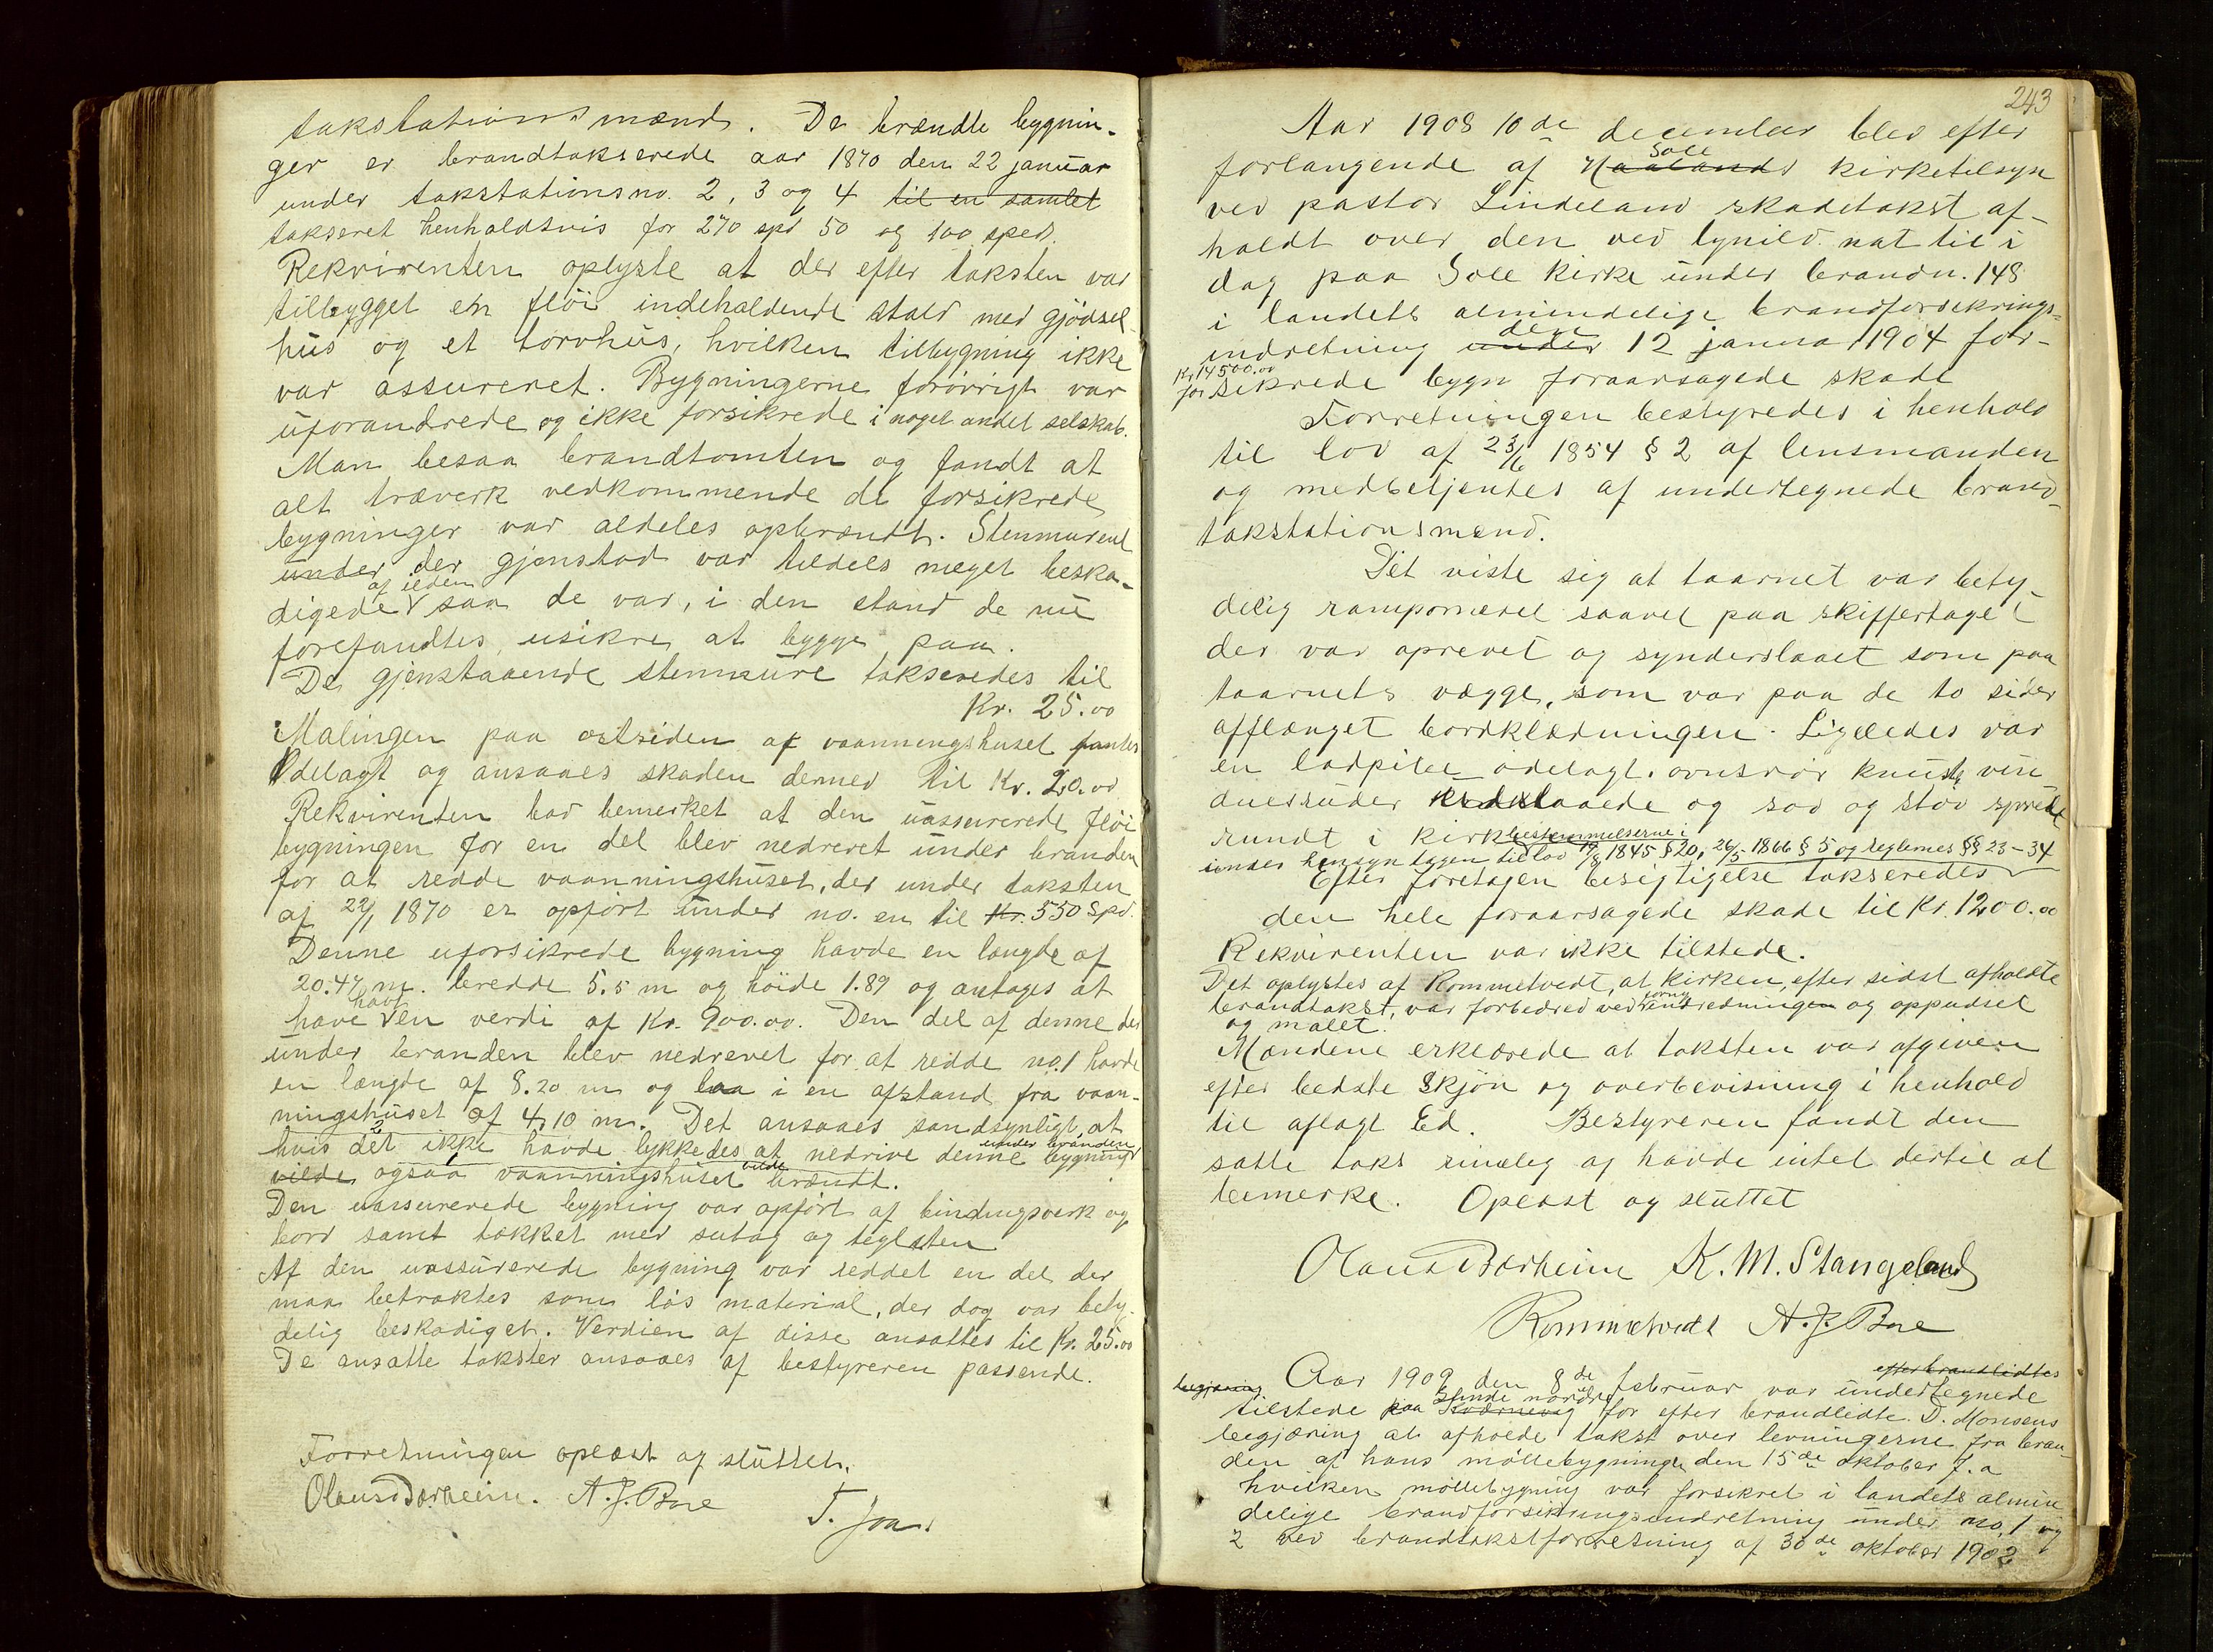 takstationsmænd. De brændte bygnin-
ger er brandtakserede aar 1870 den 22 januar
under takstationsno. 2, 3 og 4 til en samlet
takseret henholdsvis for 270 spd 50 og 100 sped.
Rekvirenten oplyste at der efter taksten var
tilbygget en fløi indeholdende stald med gjødsel-
hus og et torvhus, hvilken tilbygning ikke
var assureret. Bygningerne forøvrigt var
uforandrede og ikke forsikrede i noget andet selskab.
Man besaa brandtomten og fandt at
alt træverk vedkommende de forsikrede
bygninger var aldeles opbrændt. Stenmurene
under der gjenstod var tildels meget beska-
af ilden
digede saa de var, i den stand de nu
forefandtes, usikre at bygge paa.
De gjenstaaende stenmure takseredes til
Kr. 25.00
Malingen paa østsiden af vaanningshuset fantes
ødelagt og ansaaes skaden derved til Kr. 20.00
Rekvirenten har bemerket at den uassurerede fløi
bygningen for en del blev nedrevet under branden
for at redde vaanningshuset, der under taksten
af 22/1 1870 er opført under no. en til Kr. 550 Spd.
Denne uforsikrede bygning havde en længde af
20.47 m. bredde 5.5 m og høide 1.89 og antages at
havt
have en verdi af Kr. 900.00. Den del af denne der
under branden blev nedrevet for at redde no. 1 havde
en længde af 8.20 m og laa i en afstand fra vaan-
ningshuset af 4,10 m. Det ansaaes sandsynligt, at
under branden
hvis det ikke havde lykkedes at nedrive denne bygning
vilde
vilde ogsaa vaanningshuset brændt.
Den uassurerede bygning var opført af bindingsverk og
bord samt takket med sutag og teglsten
Af den uassurerede bygning var reddet en del der
maa betraktes som løs material, der dog var bety-
delig beskadiget. Verdien af disse ansattes til Kr. 25.00
De ansatte takster ansaaes af bestyreren passende.
Forretningen oplæst og sluttet.
Olaus Børheim. A. J. Boe
T. Joa.
243
Aar 1908 10de december blev efter
Sole
forlangende af Haalands kirketilsyn
ved pastor Lindeland skadetakst af-
holdt over den ved lynild nat til i
dag paa Sole kirke under brandn. 148
i landets almindelige brandforsikrings-
den
indretning under 12 januar 1904 for-
Kr. 14500.00
for sikrede bygn foraarsagede skade
Forretningen bestyredes i henhold
til lov af 23/6 1854 § 2 af lensmanden
og medbetjentes af undertegnede brand-
takstationsmænd.
Det viste sig at taarnet var bety-
delig ramponeret saavel paa skiffertaget
der var oprevet og synderslaaet som paa
taarnets vægge, som var paa de to sider
afflænget bordklædningen. Ligeledes var
en ladpibe ødelagt. ovnsrør knust, vin
duesruder slaaede og sod og støv spredt
rundt i kirk
bestemmelserne i
under hensyn tagen til lov 19/8 1845 § 20, 26/5 1866 § 5 og reglemes §§ 23-34
Efter foretagen besigtigelse takseredes
den hele foraarsagede skade til Kr. 1200.00
Rekvirenten var ikke tilstede.
Det oplystes af Rommetvedt, at kirken, efter sidst afholdte
brandtakst, var forbedred ved indredningen og oppudset
og malet.
Mændene erklærede at taksten var afgiven
efter bedste skjøn og overbevisning i henhold
til aflagt Ed. Bestyreren fandt den
satte takst rimelig og havde intet dertil at
bemerke. Oplæst og sluttet
Olaus Børheim K. M. Stangeland
Rommetvedt A. J. Boe
efter brandlidtes
Aar 1909 den 8de februar var undertegnede
begjæring
Sunde nordre
tilstede paa Kværnevig for efter brandlidte T. Monsens
begjæring at afholde takst over levningerne fra bran-
den af hans møllebygninge den 15de oktober f. a
hvilken møllebygning var forsikret i landets almin
delige brandforsikringsindretning under no. 1 og
2 ved brandtakstforretning af 30de oktober 1902